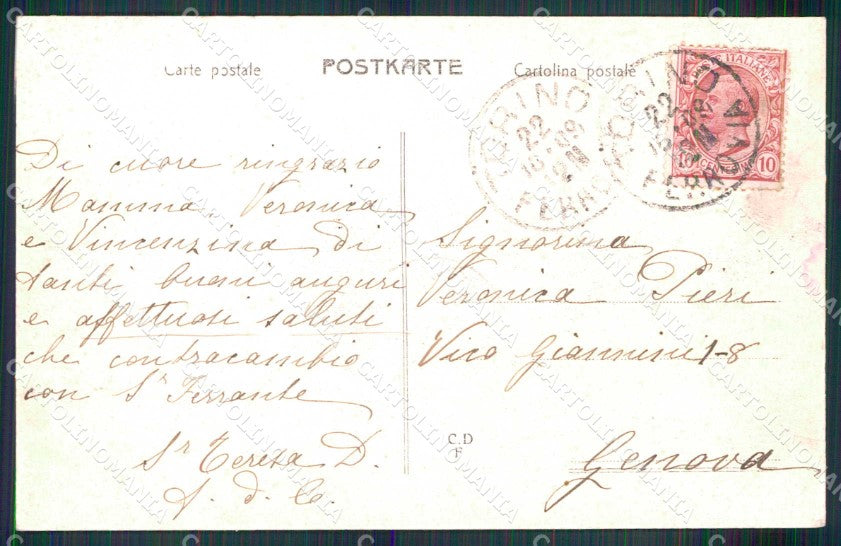 Carte postale POSTKARTE Cartolina postale
ITALIANE
10 10
TORINO
22
FERROVIA
Di cuore ringrazio
Mamma, Veronica
e Vincenzina di
tanti buoni auguri
e affettuosi saluti
che contracambio
con Sr Ferrante
Sr Teresa D.
f. d. C.
Signorina
Veronica Pieri
Vico Giannini 1-8
Genova
C.D
F
CARTOLINOMANIA